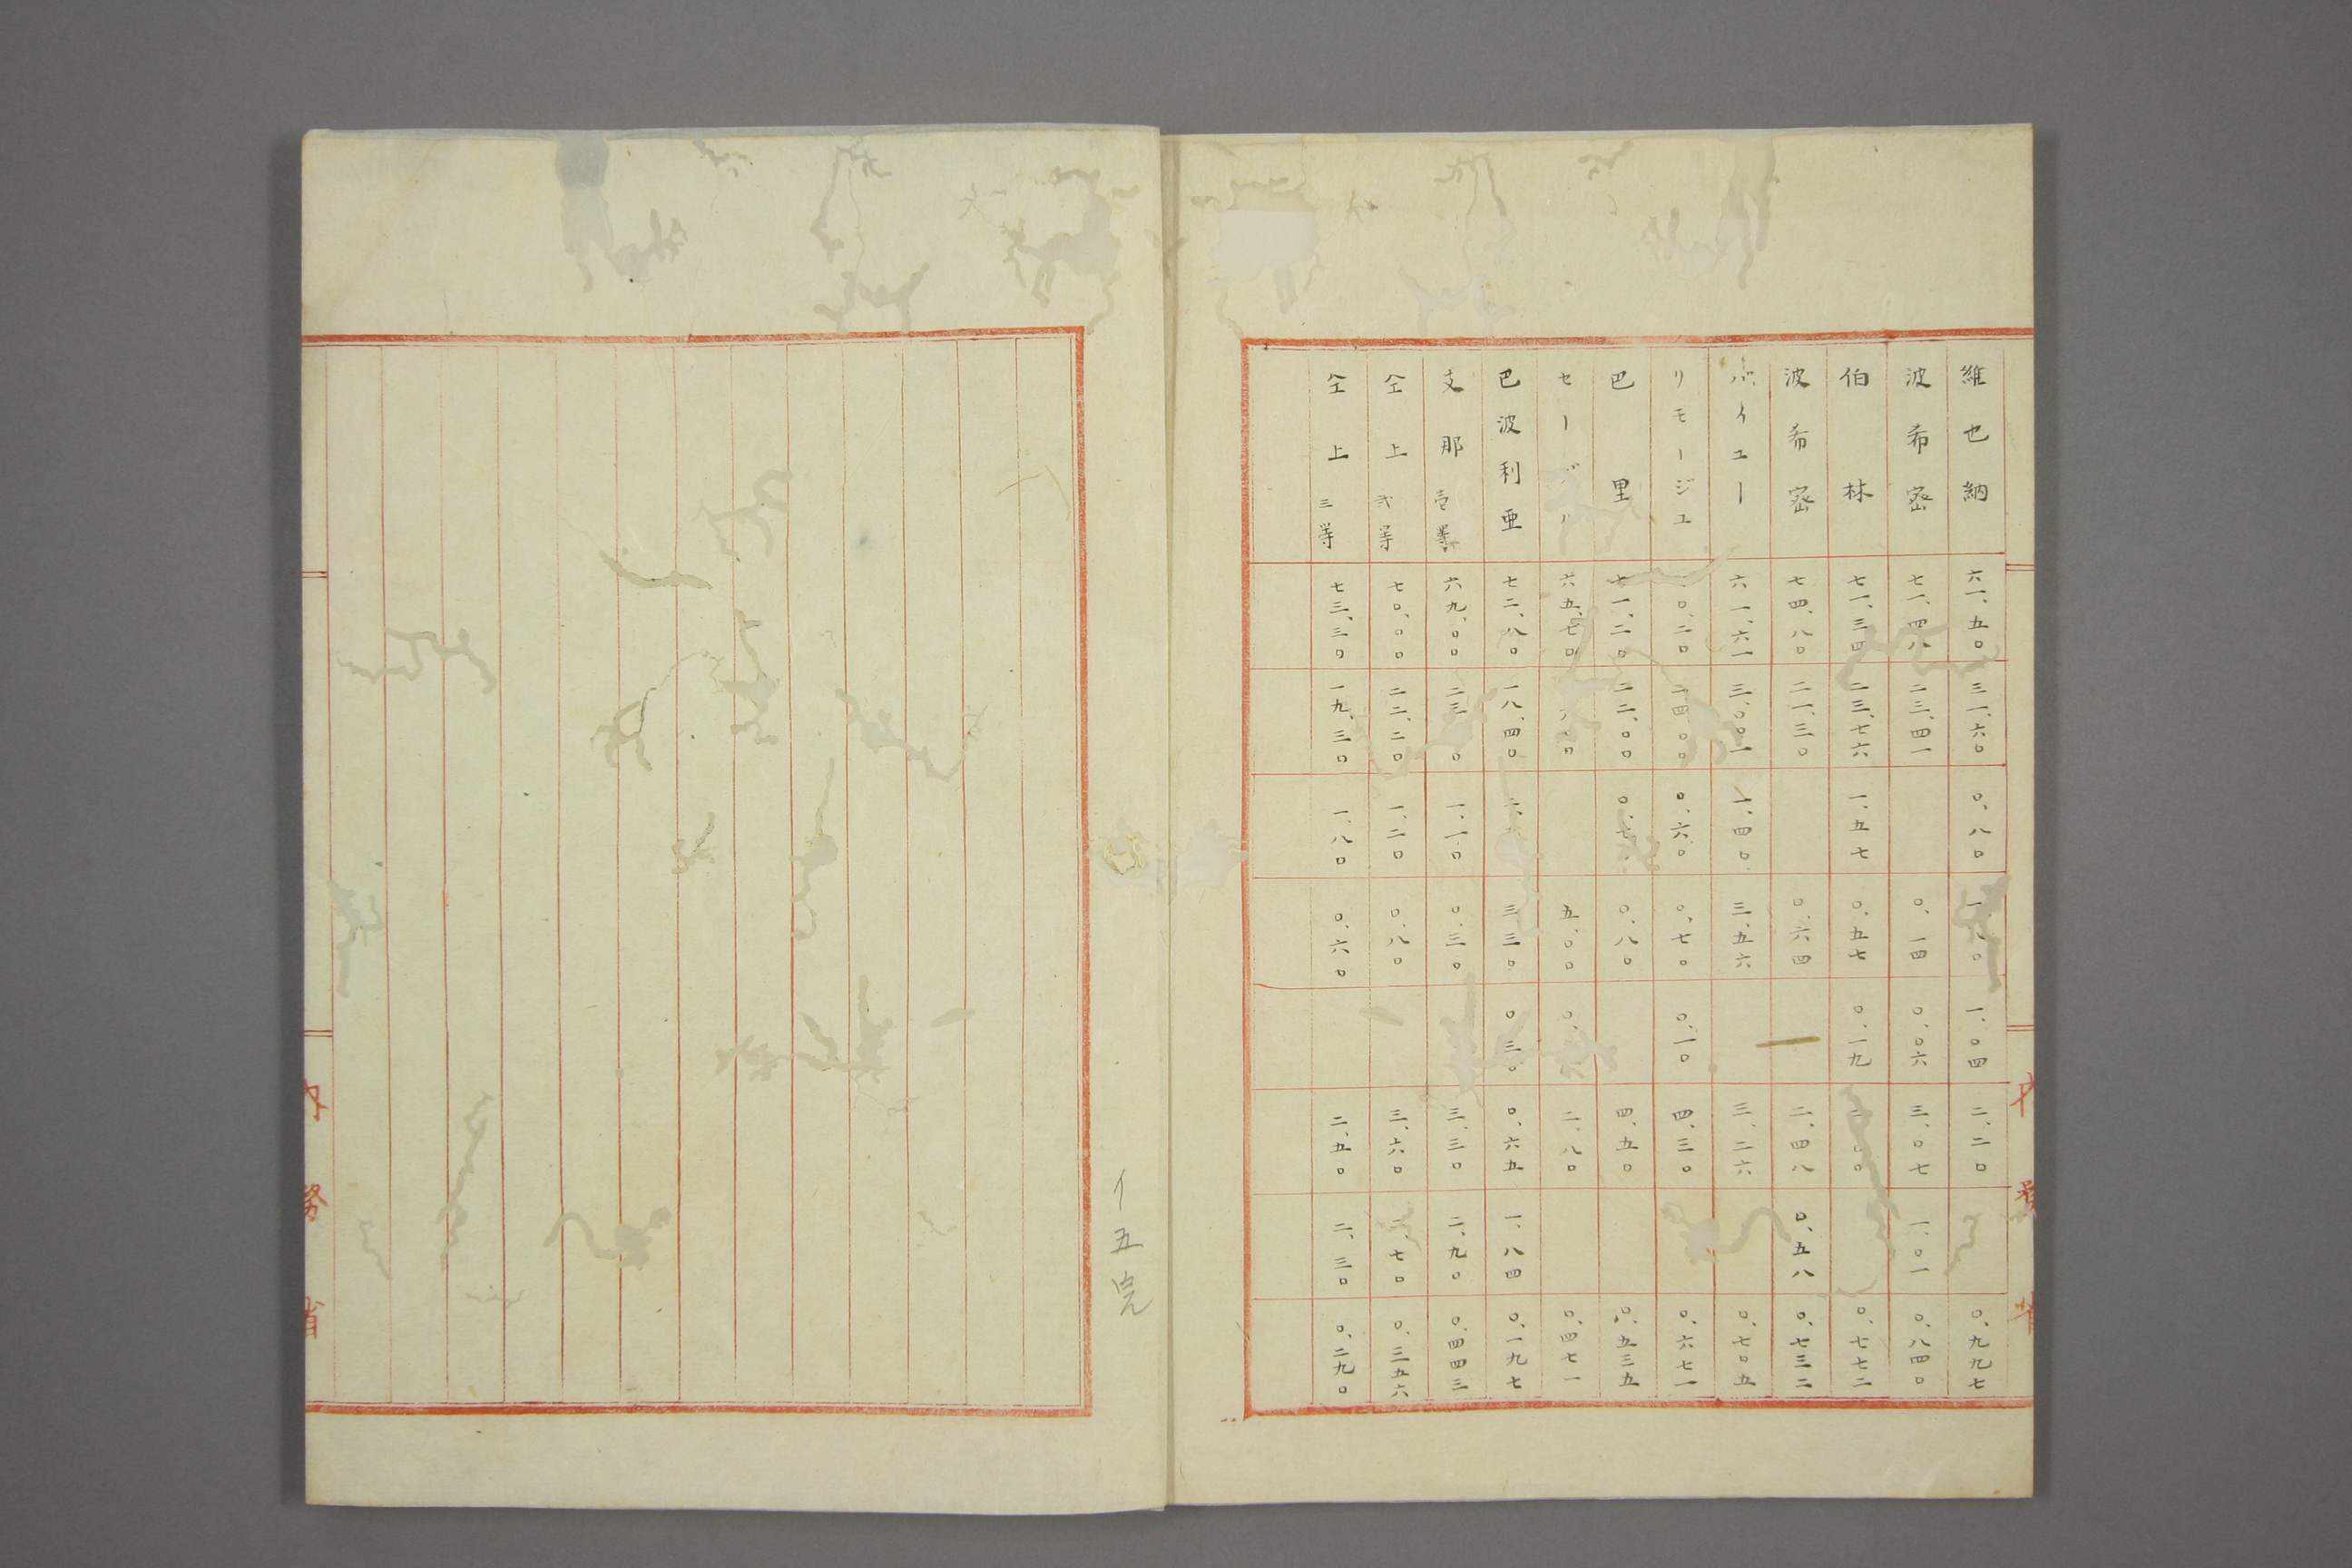 維也納 六一、五〇 三一、六〇 〇、八〇 一、〇四 二、二〇 〇、九九七
波希密 七一、四八 二三、四一 〇、一四 〇、〇六 三、〇七 一、〇一 〇、八四〇
伯林 七一、三四 二三、七六 一、五七 〇、五七 〇、一九 〇、七七二
波希密 七四、八〇 二一、三〇 〇、六四 二、四八 〇、五八 〇、七三二
イエー 六一、六一 三、〇〇一 一、四〇 三、五六 三、二六 〇、七〇五
リモージユ 〇、二〇 〇、六〇 〇、七〇 〇、一〇 四、三〇 〇、六七一
巴里 七一、二〇 二二、〇〇 〇、八〇 四、五〇 〇、五三五
六五、七〇 五、〇〇 二、八〇 〇、四七一
巴波利亜 七二、八〇 一八、四〇 三三〇 〇、六五 一、八四 〇、一九七
支那 壱等 六九、〇〇 一、一〇 〇、三〇 三、三〇 二、九〇 〇、四四三
仝上 弐等 七〇、〇〇 二二、二〇 一、二〇 〇、八〇 三、六〇 〇、三五六
仝上 三等 七三、三〇 一九、三〇 一、八〇 〇、六〇 二、五〇 二、三〇 〇、二九〇
イ五完
内務省